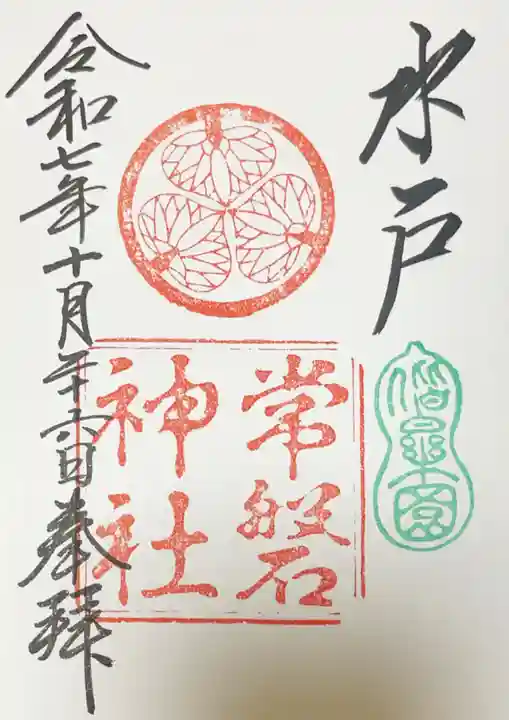 水戸
偕楽園
常磐
神社
令和七年十月二十六日奉拝